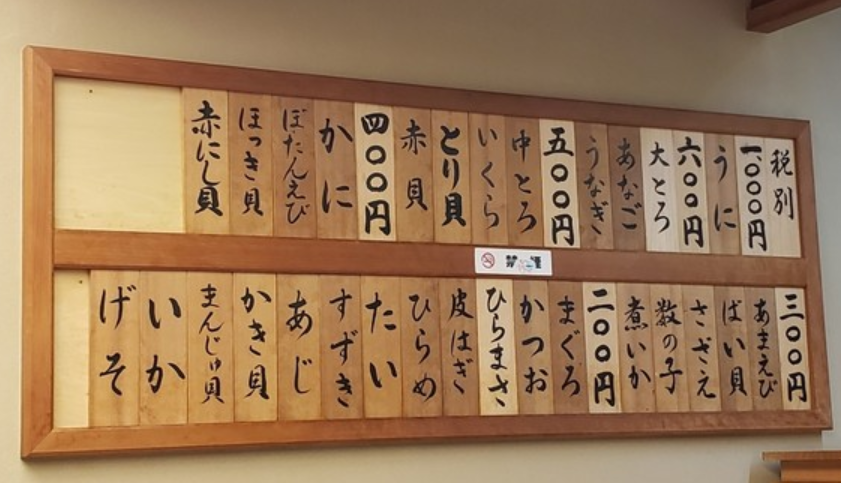 税別
一、〇〇〇円
うに
六〇〇円
大とろ
あなご
うなぎ
五〇〇円
中とろ
いくら
とり貝
赤貝
四〇〇円
かに
ぼたんえび
ほっき貝
赤にし貝
三〇〇円
あまえび
ばい貝
さざえ
数の子
煮いか
二〇〇円
まぐろ
かつお
ひらまさ
皮はぎ
ひらめ
たい
すずき
あじ
かき貝
まんじゅ貝
いか
げそ